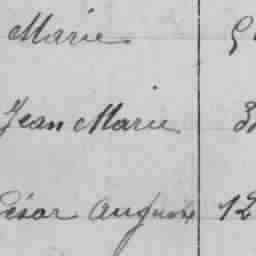 Marie
Jean Marie
César Auguste 12